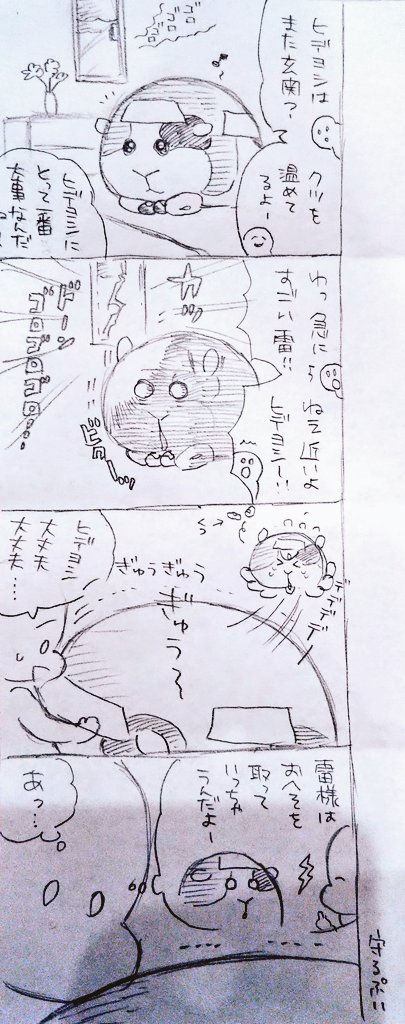 ヒデヨシは
また玄関？
クツを
温めて
るよー
ゴロ
ゴロ
ゴロ
ヒデヨシに
とって一番
大事なんだ
わっ急に
すごい雷!!
ねえ近いよ
ヒデヨシー!!
カッ
ビクーッ
ドーン
ゴロゴロ
ゴロゴロ…
くつ→
デデデデ
ぎゅう
ぎゅう
ぎゅう～
ヒデヨシ
大丈夫
大丈夫
…
雷様は
おへそを
取って
いっちゃ
うんだよー
あっ…
守るぷい